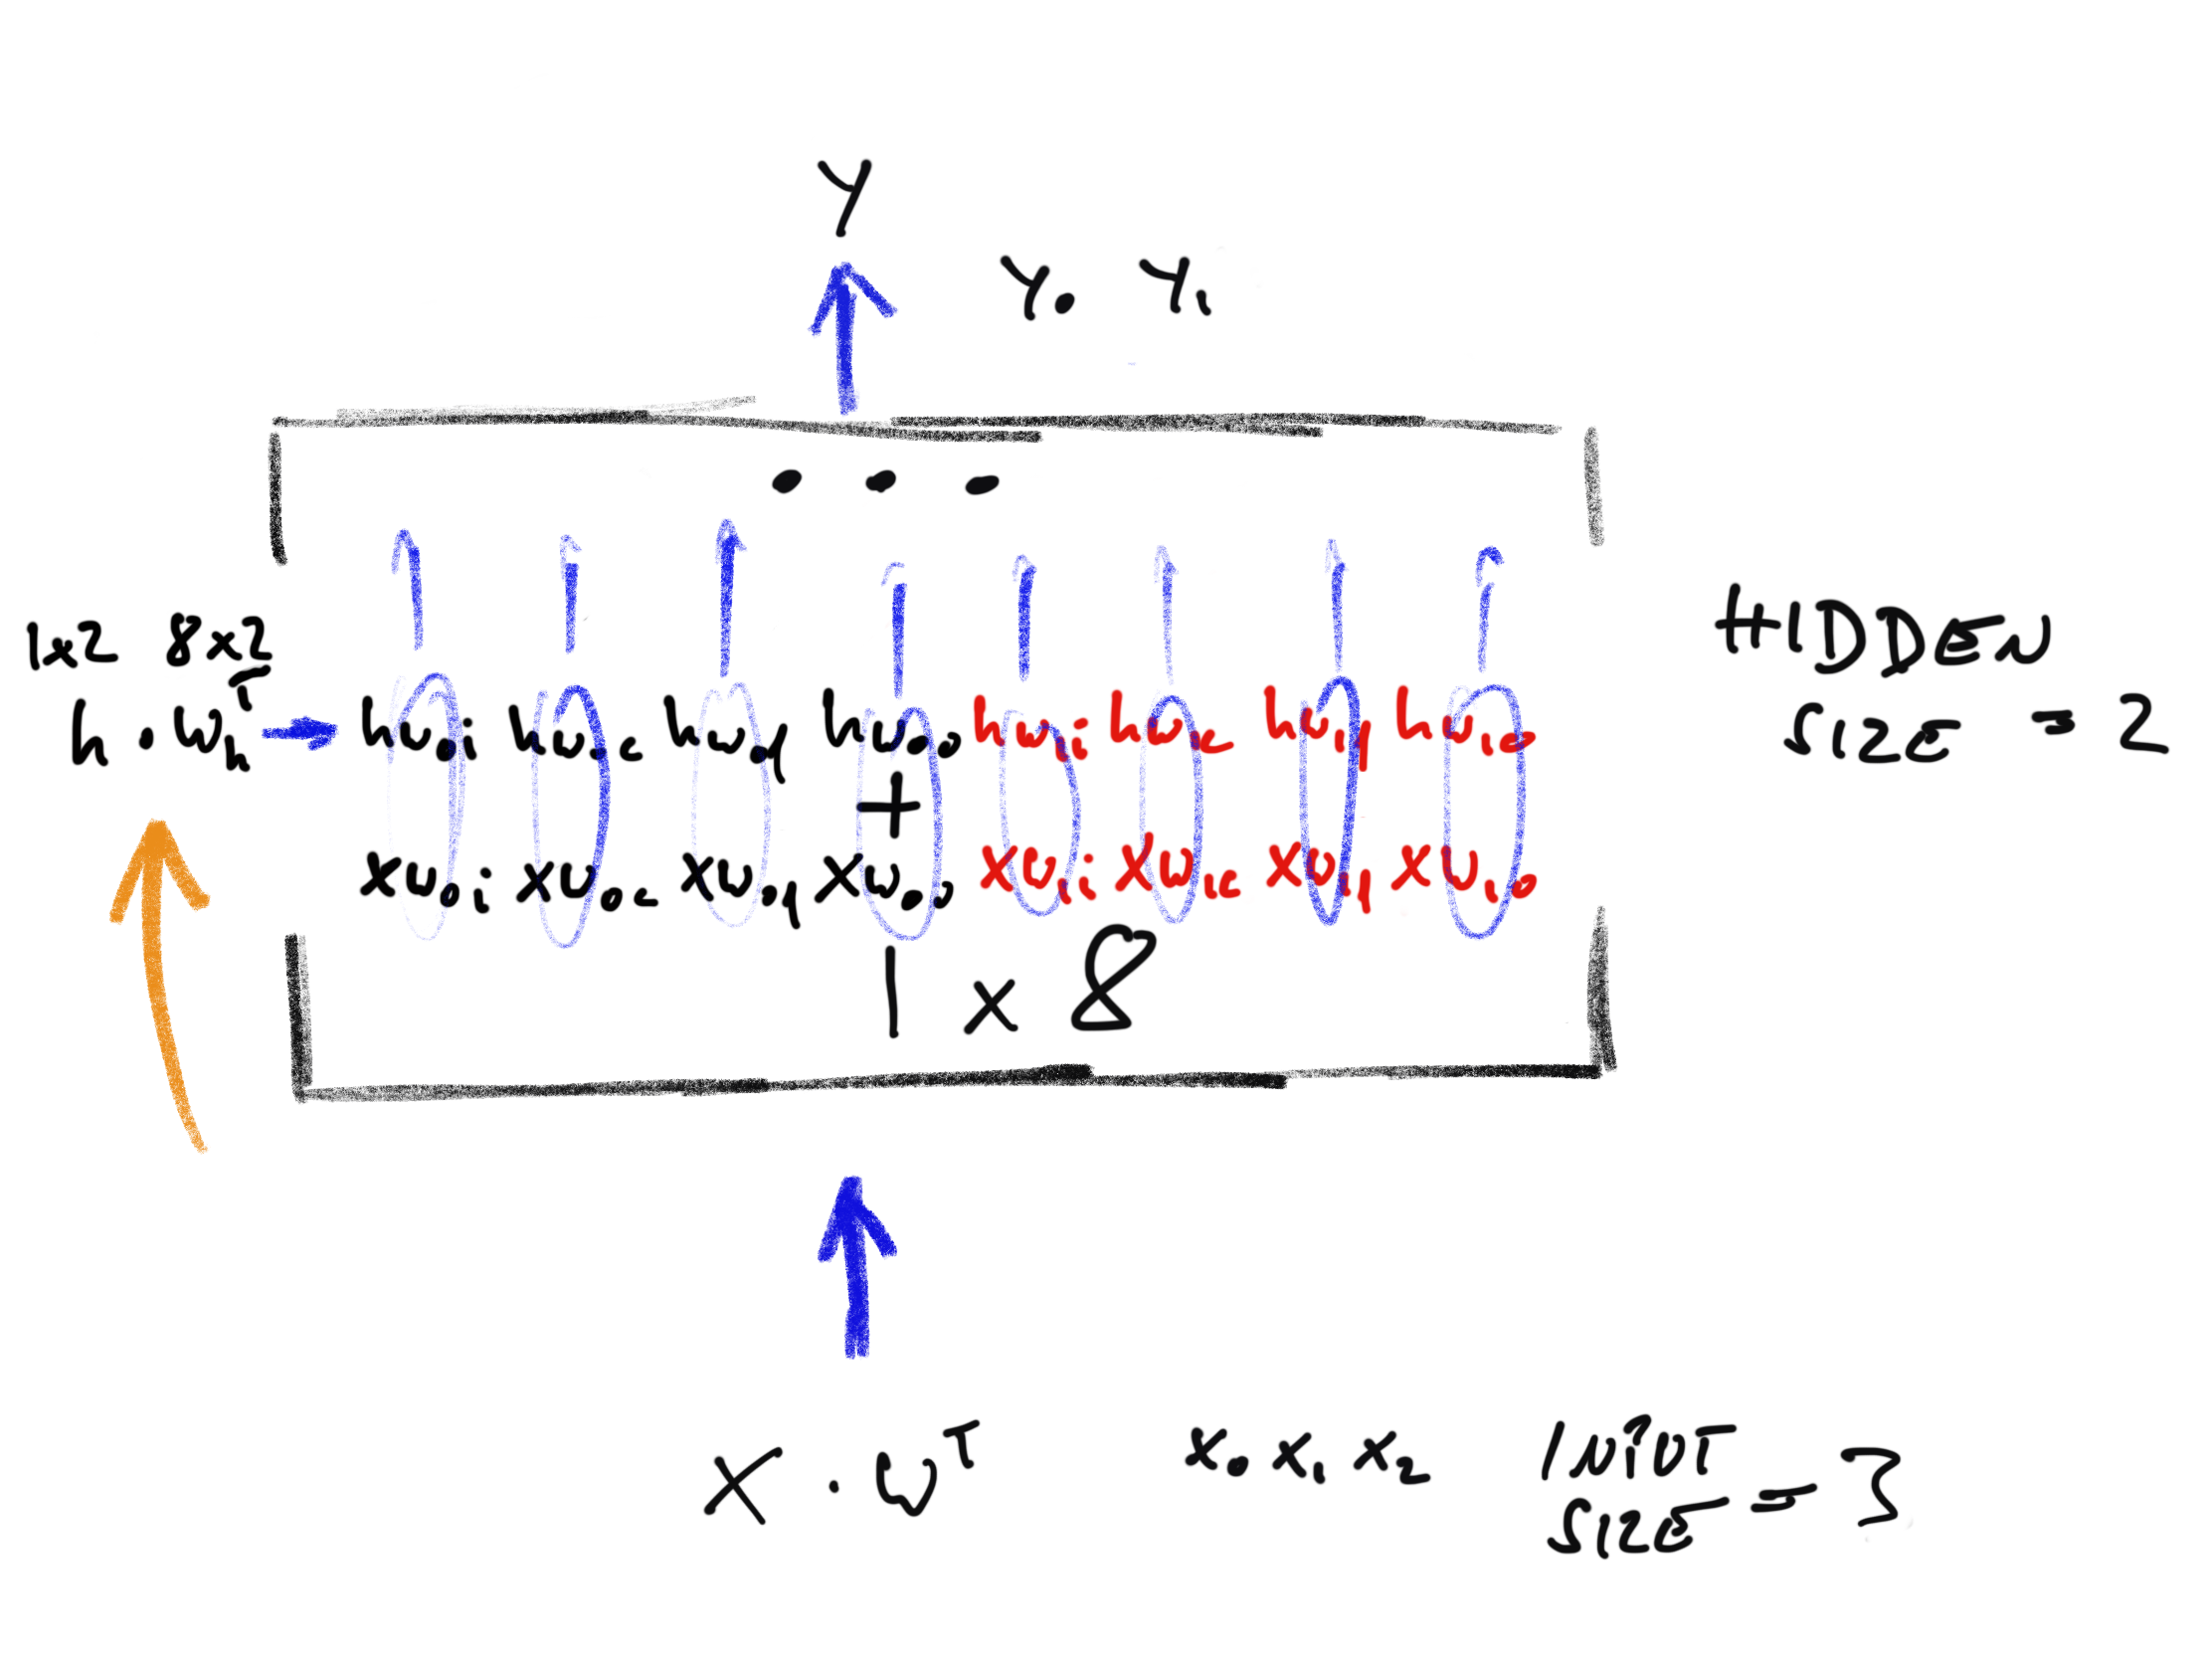 Y
Y0 Y1
...
1x2 8x2
h · Wh^T
hw0i hw0c hw0f hw0o hw1i hw1c hw1f hw1o
+
xw0i xw0c xw0f xw0o xw1i xw1c xw1f xw1o
1 x 8
HIDDEN
SIZE = 2
X · W^T
x0 x1 x2
INPUT
SIZE = 3